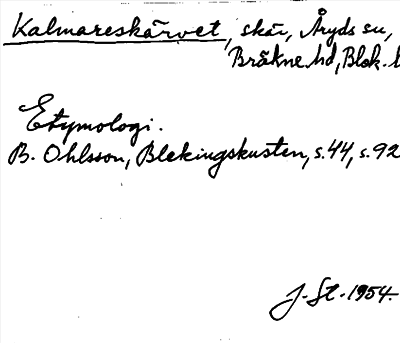 Kalmareskärvet, skär, Åryds sn,
Bräkne hd, Blek. l
Etymologi.
B. Ohlsson, Blekingskusten, s. 44, s. 92
J. St. 1954.